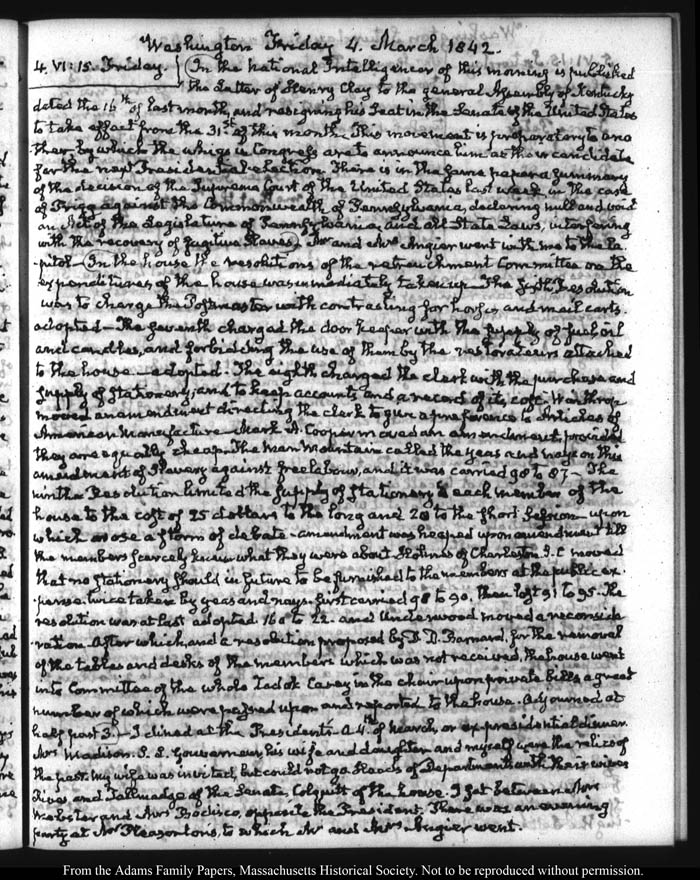 Washington Friday 4. March 1842.
4. VI:15. Friday. In the National Intelligencer of this morning is published
the Letter of Henry Clay to the general Assembly of Kentucky
dated the 16th of last month, and resigning his Seat in the Senate of the United States
to take effect from the 31st of this month. This movement is preparatory to ano
ther by which the whigs in Congress are to announce him as their candidate
for the next Presidential election. There is in the same paper a summary
of the decision of the Supreme Court of the United States last week in the case
of Prigg against the Commonwealth of Pennsylvania, declaring null and void
an Act of the Legislature of Pennsylvania, and all State Laws, interfering
with the recovery of fugitive Slaves. Mr and Mrs Angier went with me to the Ca
pitol— In the house the resolutions of the retrenchment Committee on the
expenditures of the house was immediately taken up. The sixth Resolution
was to charge the Postmaster with contracting for horses and mail carts.
adopted— The seventh charged the door keeper with the supply of fuel oil
and candles, and forbidding the use of them by the restorateurs attached
to the house.— adopted. The eighth charged the clerk with the purchase and
supply of Stationery, and to keep accounts and a record of its cost. Winthrop
moved an amendment directing the clerk to give a preference to Articles of
American Manufacture— Mark A. Cooper moved an amendment, provided
they are equally cheap. The Man Mountain called the yeas and nays on this
amendment of Slavery against free labour, and it was carried 98 to 87— The
ninth Resolution limited the supply of Stationery to each member of the
house to the cost of 25 dollars to the long and 20 to the short Session— upon
which arose a storm of debate— amendment was heaped upon amendment till
the members scarcely knew what they were about. Holmes of Charleston. S. C moved
that no stationery should in future to be furnished to the members at the public ex-
pense twice taken by yeas and nays. first carried 98 to 90. then lost 91 to 95. The
resolution was at last adopted. 160 to 22. and Underwood moved a reconside
ration. After which, and a resolution proposed by D. D. Barnard, for the removal
of the tables and desks of the members which was not received, the house went
into Committee of the whole Zadok Casey in the chair upon private bills a great
number of which were passed upon and reported to the house. Adjourned at
half past 3.— I dined at the President's. A 4th of March or ex-presidential dinner.
Mrs Madison. S. L. Gouverneur his wife and daughter and myself were the relics of
the past. My wife was invited, but could not go. Heads of Departments with their wives
Rives and Tallmadge of the Senate, Colquitt of the house. I sat between Mrs
Webster and Mrs Bodisco, opposite the President. There was an evening
party at Mr Pleasonton's, to which Mr and Mrs Angier went.
From the Adams Family Papers, Massachusetts Historical Society. Not to be reproduced without permission.